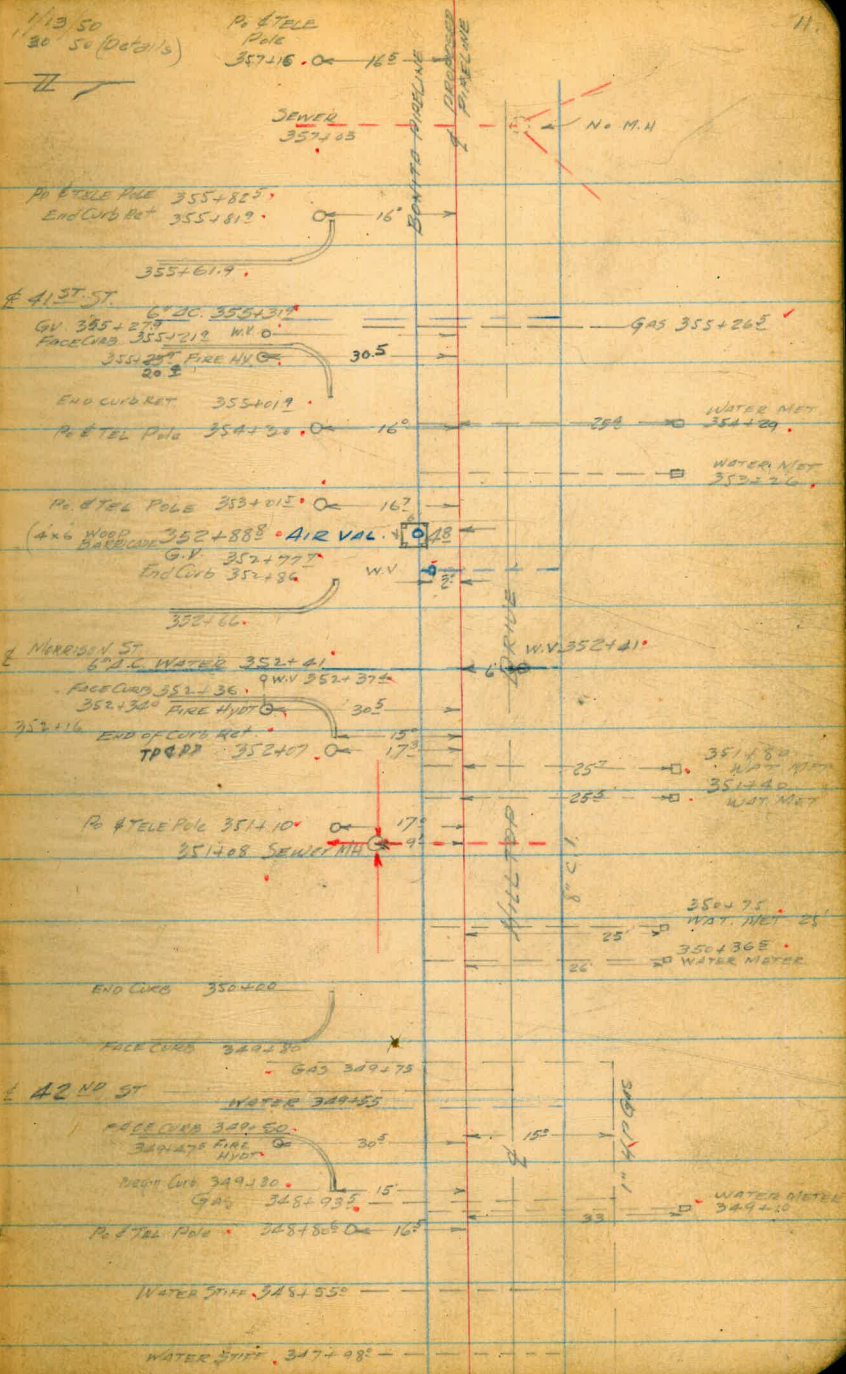 1/13/50
30 50 (Details)
11.
Po & TELE
Pole
357+16 16⁵
BONITA PIPELINE
℄ PROPOSED
PIPELINE
SEWER
357+03
No M.H
Po & TELE POLE 355+82⁵
End Curb Ret 355+81⁹ 16⁰
355+61.9
℄ 41ST. ST.
6" A.C. 355+31⁹
GV. 355+27⁹ W.V.
FACE CURB 355+21⁹
GAS 355+26⁵
355+ FIRE HY 30.5
20.⁹
END CURB RET 355+01⁹
Po & TEL Pole 354+30 16⁰
WATER MET
354+29
WATER MET
353+26
Po. & TEL POLE 353+01⁵ 16⁷
(4x6 WOOD
BARRICADE 352+88⁸ AIR VAL. 4⁸
G.V. 352+77⁷
End Curb 352+86 W.V
352+66
DRIVE
W.V. 352+41
℄ MORRISON ST
6" A.C. WATER 352+41 6
W.V 352+37⁴
FACE CURB 352+36
352+34⁰ FIRE HYDT 30⁵
352+16 END OF CURB Ret. 15⁰
TP&PP 352+07 17³
351+80
25⁷ WAT. MET
351+40
25⁵ WAT MET
HILLTOP
8" C.I.
Po & TELE Pole 351+10 17⁰
351+08 Sewer MH 9⁵
350+75
WAT. MET 25'
25'
350+36⁵
26 WATER METER
END CURB 350+00
FACE CURB 349+80
GAS 349+75
℄ 42ND ST
WATER 349+55
1" H.P GAS
FACE CURB 349+50
349+47⁵ FIRE
HYDT 30⁵ 15³
℄
Begin Curb 349+30 15
GAS 348+93⁵
WATER METER
349+10
33
Po & Tel Pole 348+80⁶ 16⁵
WATER STIFF 348+55⁰
WATER STIFF 347+98⁰